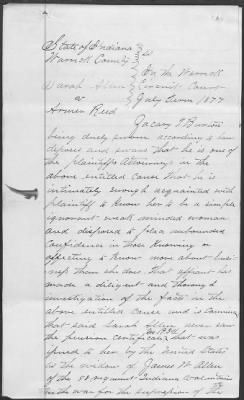 State of Indiana
Warrick County } SS
In the Warrick
Sarah Allen } Circuit Court
vs July Term 1877
Armer Reed
Zacary T Burton
being duly sworn according to law
deposes and swears that he is one of
the plaintiffs Attorneys in the
above entitled cause that he is
intimately enough acquainted with
plaintiff to know her to be a simple
ignorant weak minded woman
and disposed to place unbounded
confidence in those knowing or
affecting to know more about busi-
ness than she does that affiant has
made a diligent and thorough
investigation of the facts in the
above entitled cause and is
that said Sarah Allen never saw
the pension certificate that was
issued to her by the United States
as the widow of James W Allen
of the 58 regiment Indiana volunteers
in the war for the supression of the